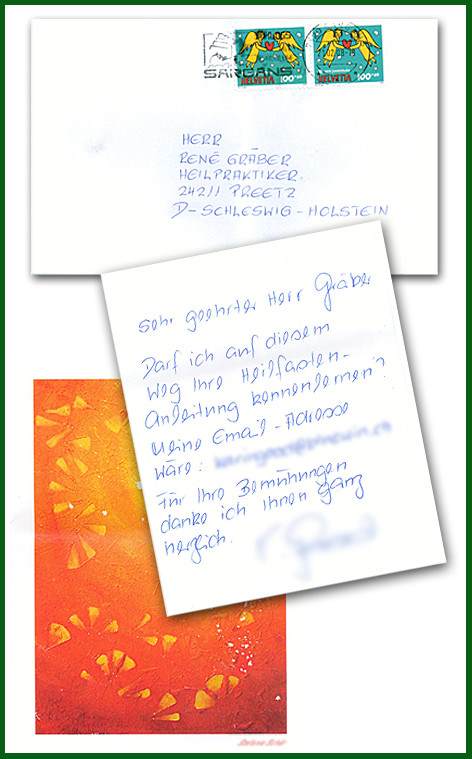 SARGANS
HELVETIA 100
HELVETIA 100
HERR
RENÉ GRÄBER
HEILPRAKTIKER.
24211 PREETZ
D-SCHLESWIG-HOLSTEIN
Sehr geehrter Herr Gräber
Darf ich auf diesem
Weg Ihre Heilfasten-
Anleitung kennenlernen?
Meine Email-Adresse
wäre:
Für Ihre Bemühungen
danke ich Ihnen ganz
herzlich.